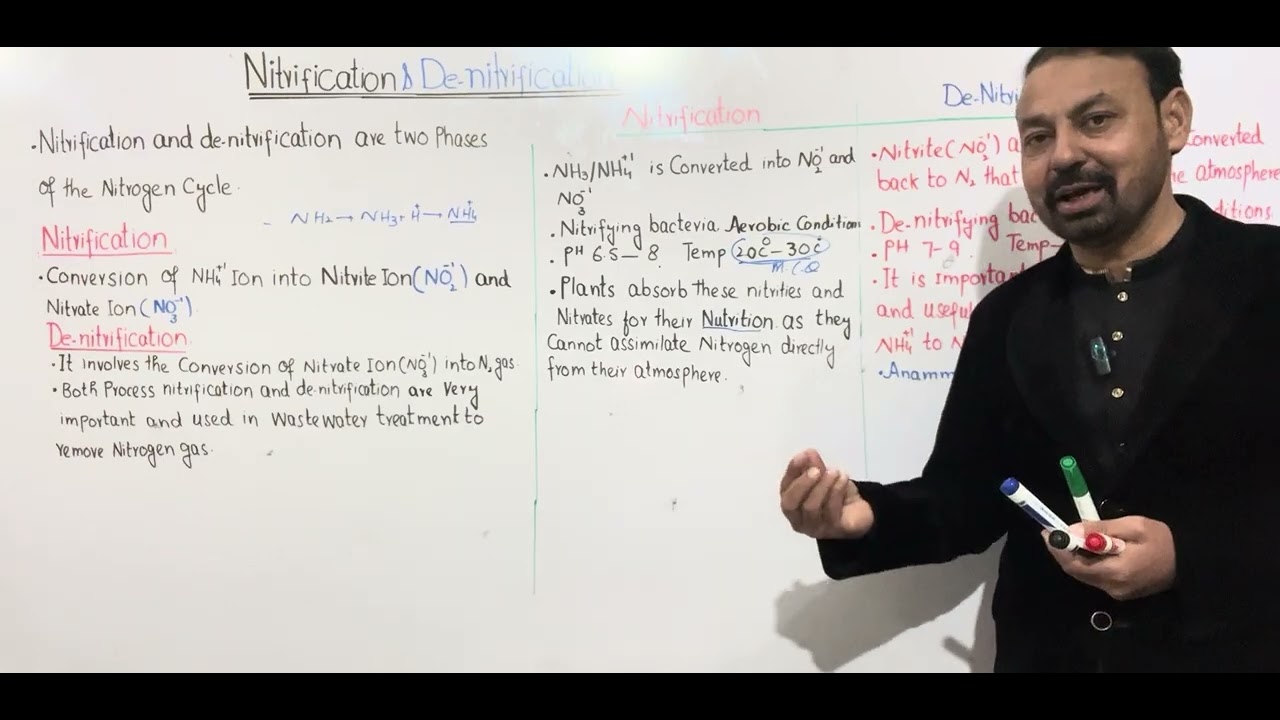 Nitrification & De-nitrification
• Nitrification and de-nitrification are two Phases
of the Nitrogen Cycle.
- NH2 → NH3 + H⁺ → NH4⁺
Nitrification
• Conversion of NH4⁺¹ Ion into Nitrite Ion (NO2⁻¹) and
Nitrate Ion (NO3⁻¹).
De-nitrification
• It involves the Conversion of Nitrate Ion (NO3⁻¹) into N2 gas.
• Both Process nitrification and de-nitrification are very
important and used in wastewater treatment to
remove Nitrogen gas.
Nitrification
• NH3/NH4⁺¹ is Converted into NO2⁻¹ and
NO3⁻¹
• Nitrifying bacteria Aerobic Condition
• PH 6.5 – 8 Temp 20c° – 30c°
M.C.Q
• Plants absorb these nitrities and
Nitrates for their Nutrition as they
Cannot assimilate Nitrogen directly
from their atmosphere.
De-Nitri
• Nitrite (NO2⁻¹) a Converted
back to N2 that e atmosphere
• De-nitrifying bac ditions
• PH 7-9 Temp-
• It is Importa
and useful
NH4⁺¹ to N
• Anamm